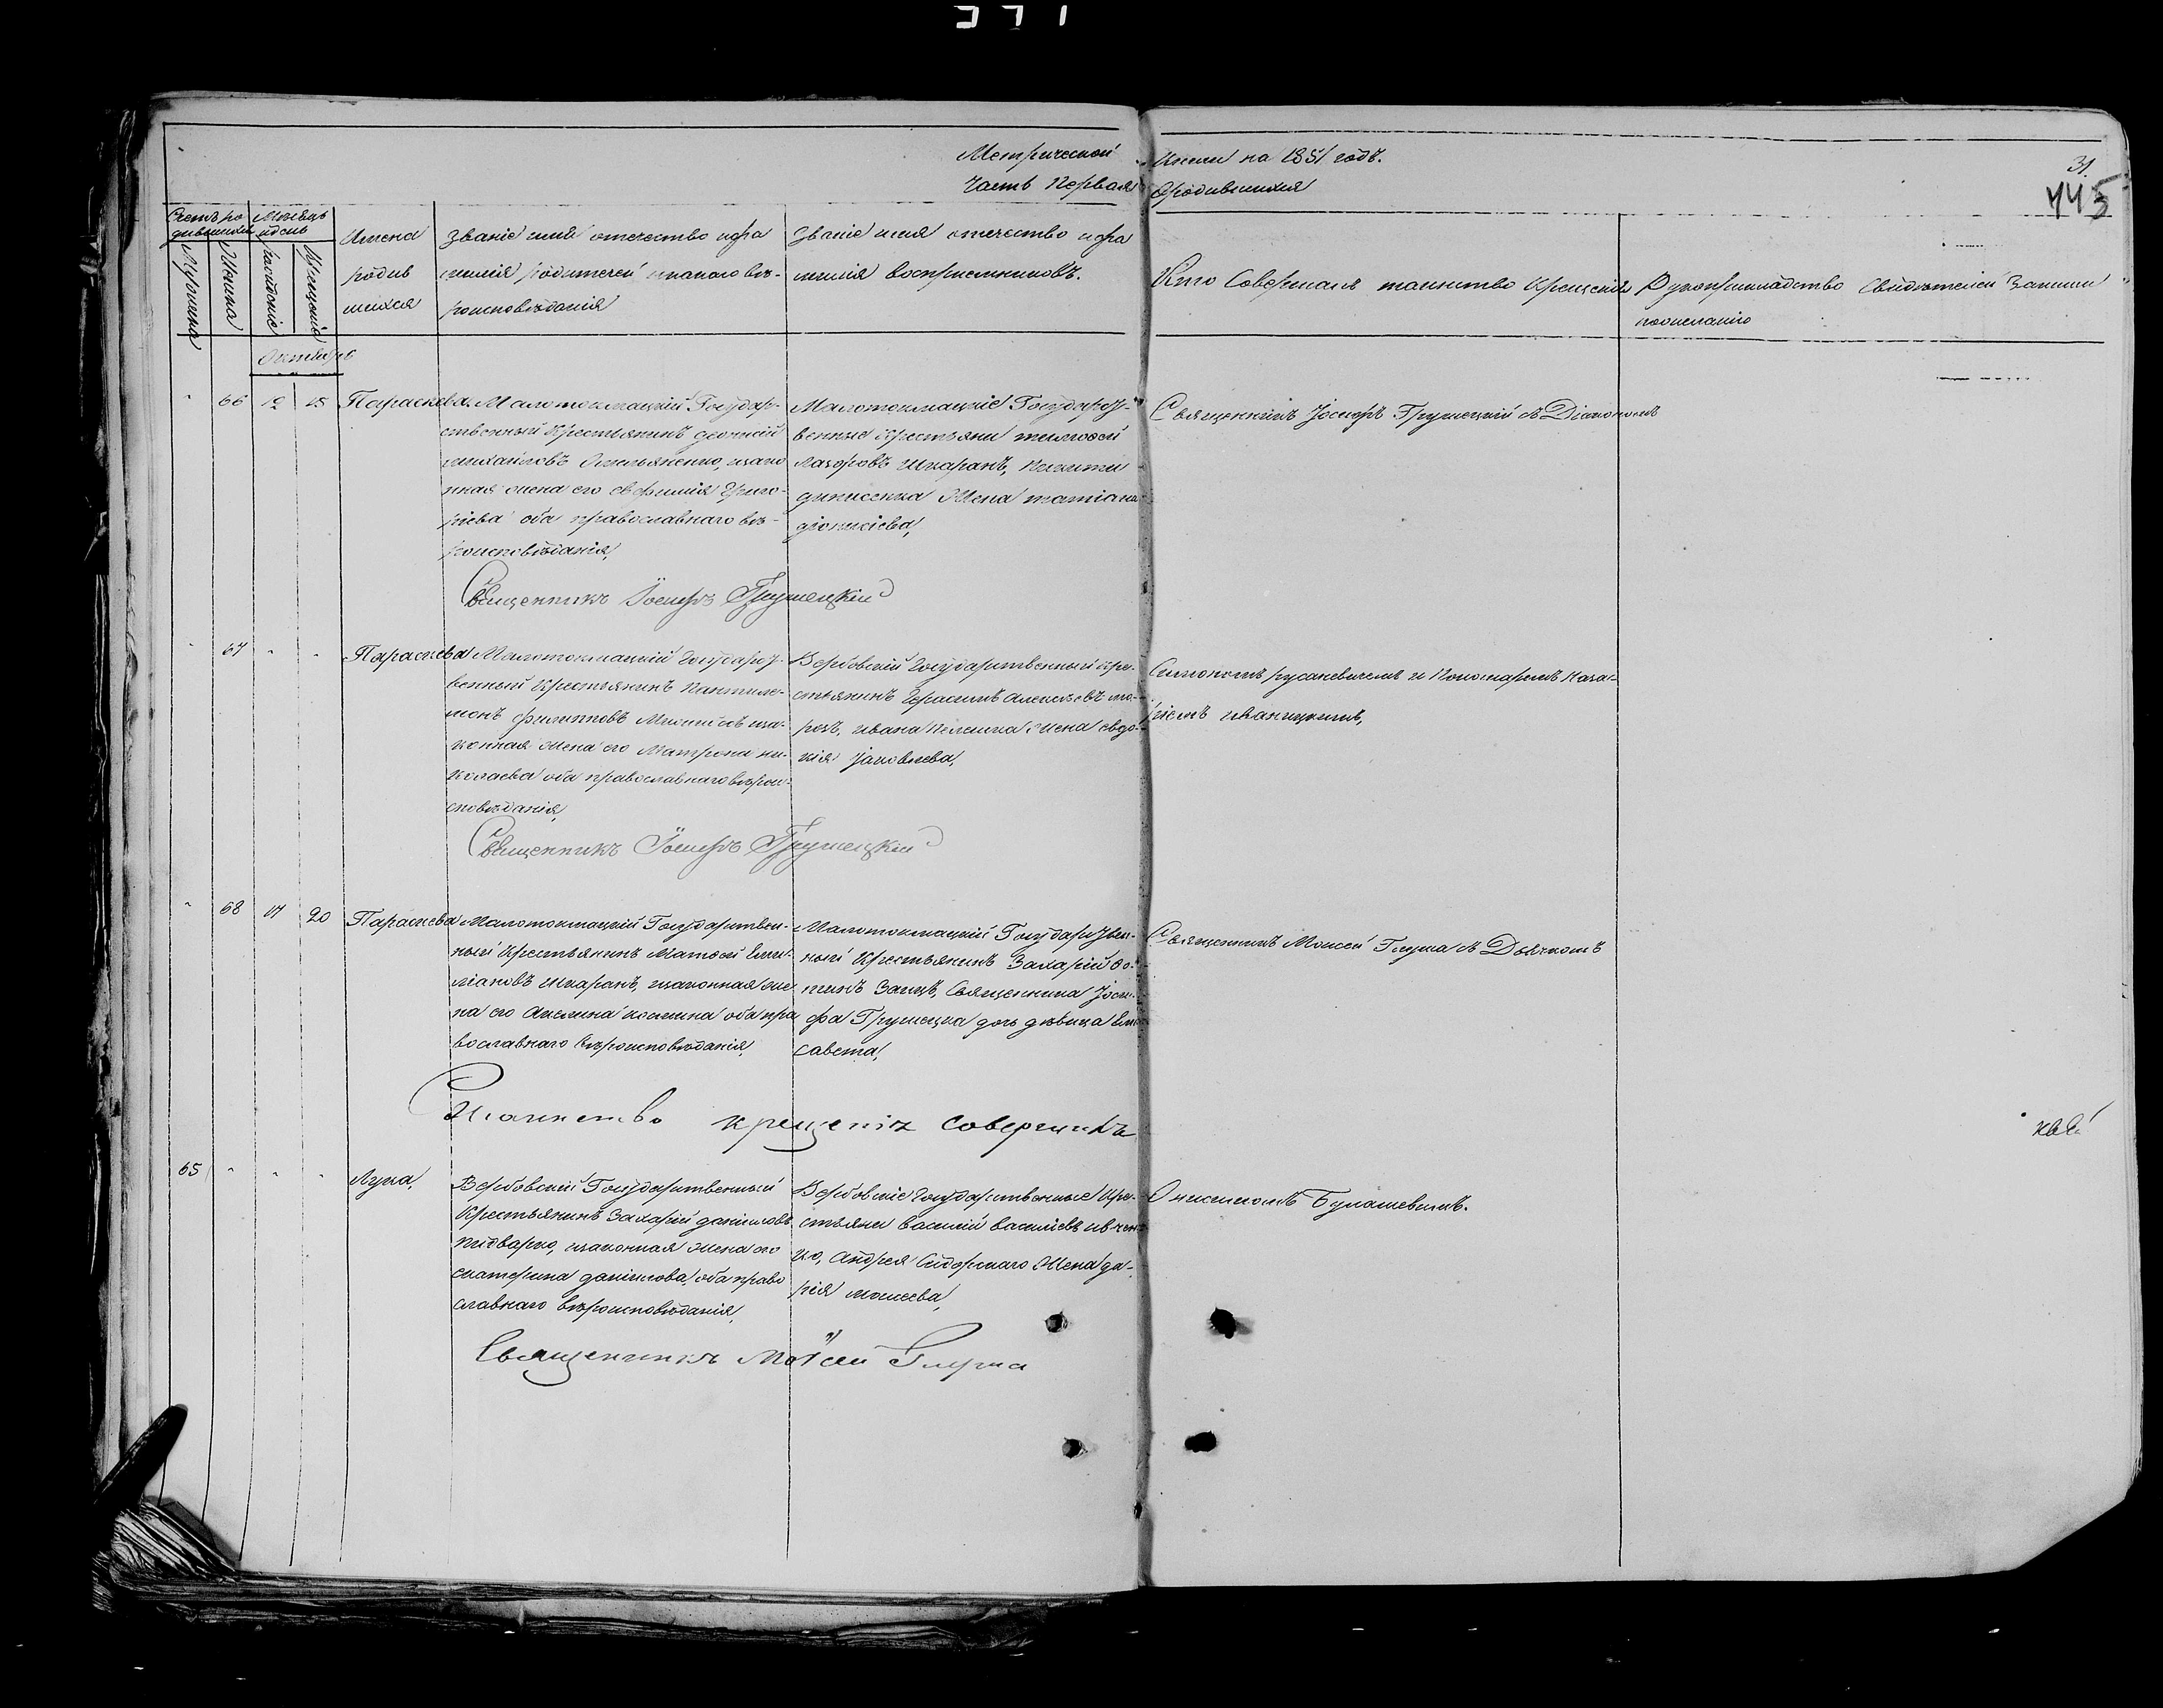 Метрической книги на 1851 годъ.
Часть Первая О родившихся
31.
445
Счетъ ро
дившихся
Мужеска
Женска
Мѣсяцъ
и день
рожденіе
Крещеніе
Имена
родив
шихся
Званіе имя отечество и фа
милія родителей и какого вѣ-
роисповѣданія
Званіе имя отечество и фа
милія воспріемниковъ.
Кто Совершалъ таинство Крещенія
Рукоприкладство Свидѣтелей Записи
по желанію
Октября
66 12 15 Параскева.
Малотокмацкій Государ-
ственный Крестьянинъ
михайловъ Омельяненко, зако
нная жена его евфимія Григо-
ріева оба православнаго вѣ-
роисповѣданія,
Малотокмацкіе Государст-
венные Крестьяни тимофей
лазоровъ Шкаранъ, Никиты
Жена татіана
діонисіева,
Священникъ Іосифъ Грушецкій съ Діакономъ
Священникъ Іосифъ Грушецкій
67 " " Параскева
Малотокмацкій Государст-
венный Крестьянинъ Пантиле-
монъ филипповъ за-
конная жена его Матрона ни-
колаева оба православнаго вѣрои-
сповѣданія,
Вербовскій Государственный Кре-
стьянинъ Герасимъ Алексѣевъ мо-
розъ, ивана жена евдо-
кія Іаковлева,
Симономъ русаневичемъ и Пономаремъ Наза-
ріемъ иваницкимъ,
Священникъ Іосифъ Грушецкій
68 17 20 Параскева
Малотокмацкій Государствен-
ный Крестьянинъ Матфей Еми-
ліановъ Шкаранъ, законная же
на его Акилина козмина оба пра
вославнаго вѣроисповѣданія,
Малотокмацкій Государствен-
ный Крестьянинъ Захарій фо-
минъ Заецъ, Священника Іоси-
фа Грушецка дочь дѣвица Ели
савета,
Священникъ Моисей Глума съ Дьячкомъ
Таинство крещенія совершилъ
65 " " " Лука,
Вербовскій Государственный
Крестьянинъ Захарій даніиловъ
Пидварко, законная жена его
екатерина даніилова, оба право
славнаго вѣроисповѣданія,
Вербовскіе Государственные Кре-
стьяни василій васильевъ ивчен
ко, Андрея Сидорскаго Жена да-
рія моисеева,
Онисимомъ Булашевимъ.
Священникъ Моѵсей Глума